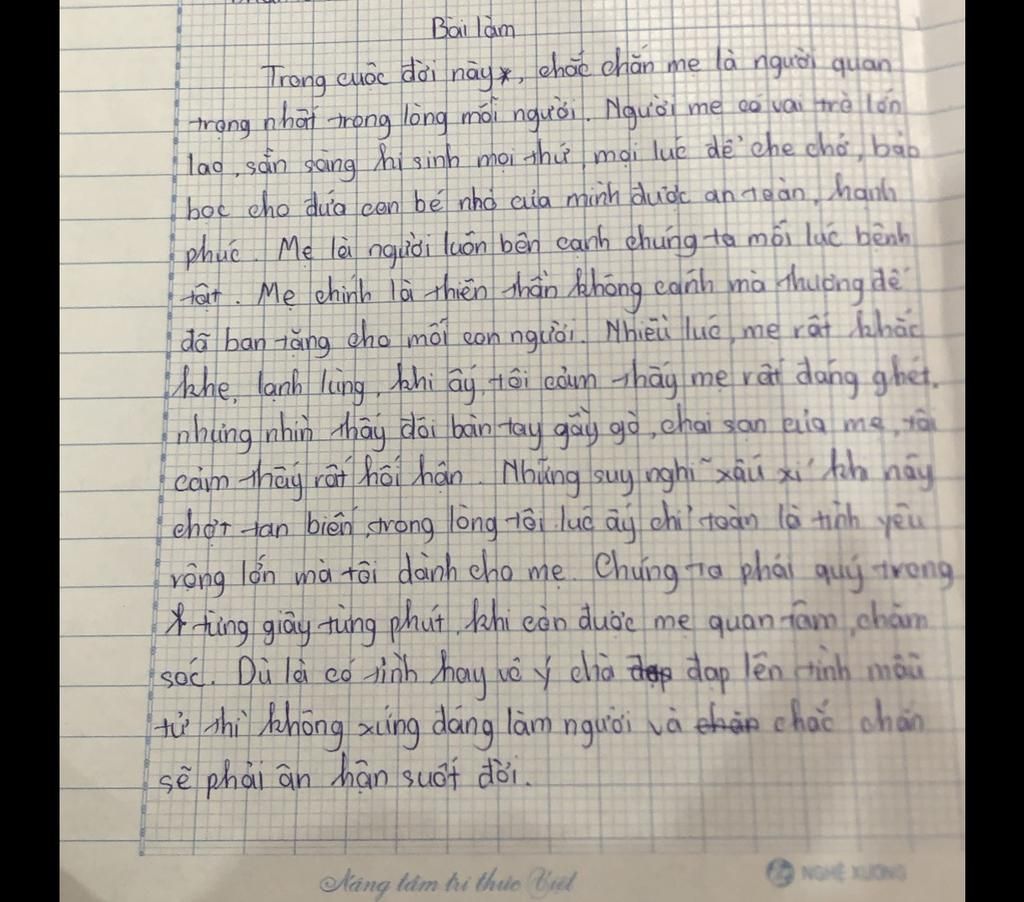 Bài làm
Trong cuộc đời này*, chắc chắn mẹ là người quan
trọng nhất trong lòng mỗi người. Người mẹ có vai trò lớn
lao, sẵn sàng hi sinh mọi thứ, mọi lúc để che chở, bảo
bọc cho đứa con bé nhỏ của mình được an toàn, hạnh
phúc. Mẹ là người luôn bên cạnh chúng ta mỗi lúc bệnh
tật. Mẹ chính là thiên thần không cánh mà thượng đế
đã ban tặng cho mỗi con người. Nhiều lúc, mẹ rất khắc
khe, lạnh lùng, khi ấy, tôi cảm thấy mẹ rất đáng ghét.
nhưng nhìn thấy đôi bàn tay gầy gò, chai sạn của mẹ, tôi
cảm thấy rất hối hận. Những suy nghĩ xấu xí kh nãy
chợt tan biến, trong lòng tôi lúc ấy chỉ toàn là tình yêu
rộng lớn mà tôi dành cho mẹ. Chúng ta phải quý trọng
* từng giây từng phút, khi còn được mẹ quan tâm, chăm
sóc. Dù là cố tình hay vô ý chà đạp đạp lên tình mẫu
tử thì không xứng đáng làm người và chắc chắn
sẽ phải ân hận suốt đời.
Nâng tầm tri thức Việt
NGHỆ XƯƠNG